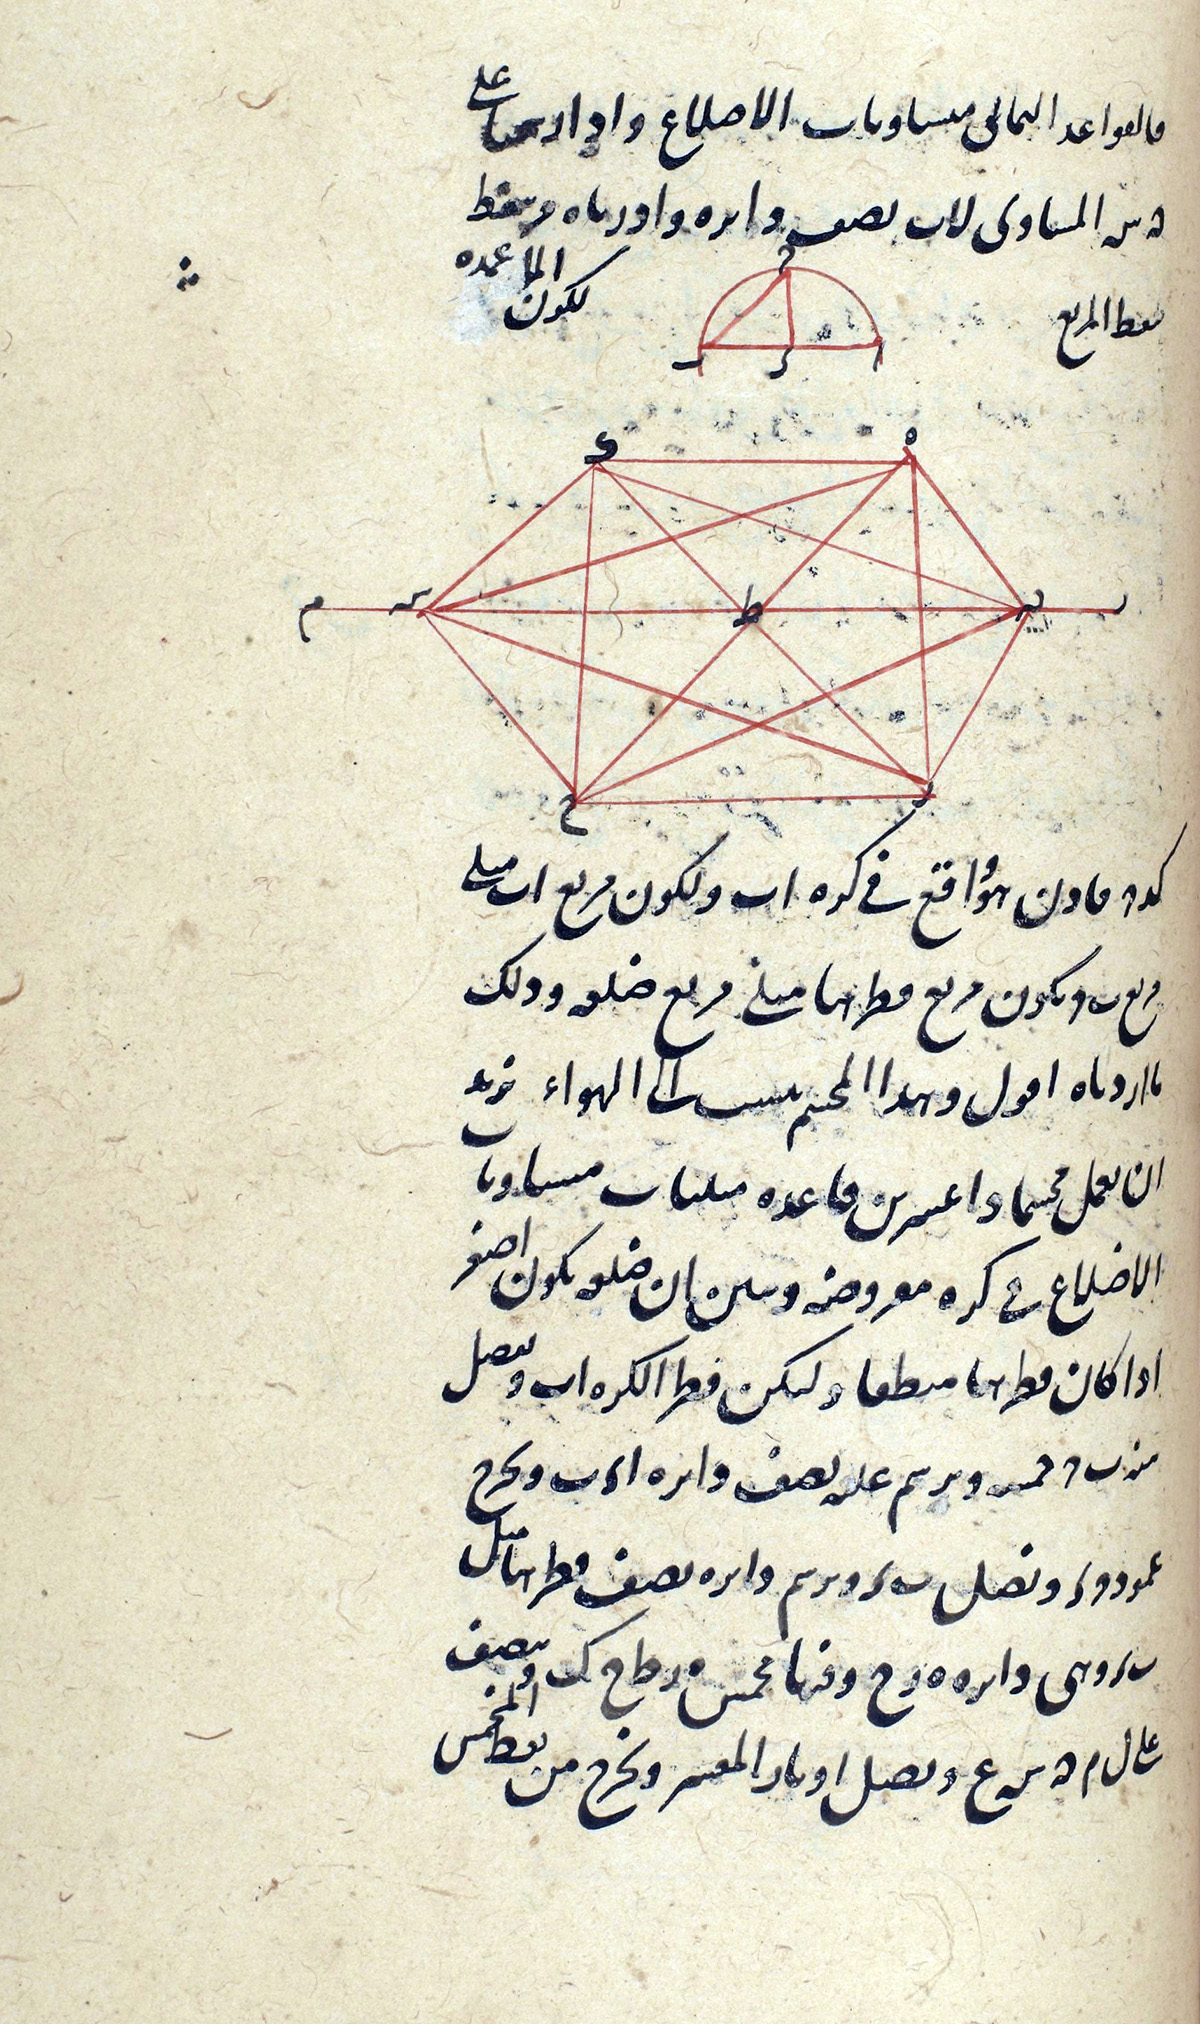 فالقواعد الثمانى متساويات الاضلاع واذا ادرنا على
ں س المساوى لاب نصف دايره وادرناه وسقط
نقط المربع
لكون الاعمده
ح
ب
ء
ا
ى
ه
م
س
ط
ں
ل
ح
ر
كذلك فاذن هو واقع فى كره اب ولكون مربع اب مثلى
مربع ب ح يكون مربع قطرها مثلى مربع ضلعه وذلك
ما اردناه اقول وهذا المجسم ينسب الى الهواء نريد
ان نعمل مجسما ذا عشرين قاعده مثلثات متساويات
الاضلاع فى كره مفروضه ونبين ان ضلعه يكون اصغر
اذا كان قطرها منطقا وليكن قطر الكره اب ونفصل
منه ب ح خمسه ونرسم عليه نصف دايره ا ء ب ونخرج
عمود ح ء ونصل ب ء ونرسم دايره نصف قطرها مثل
ب ء وهى دايره ه ر ح وفيها مخمس ه ر ط ح ك وننصف
على ل م ں س ع ونصل اوتار المعشر ونخرج من نقط المخمس